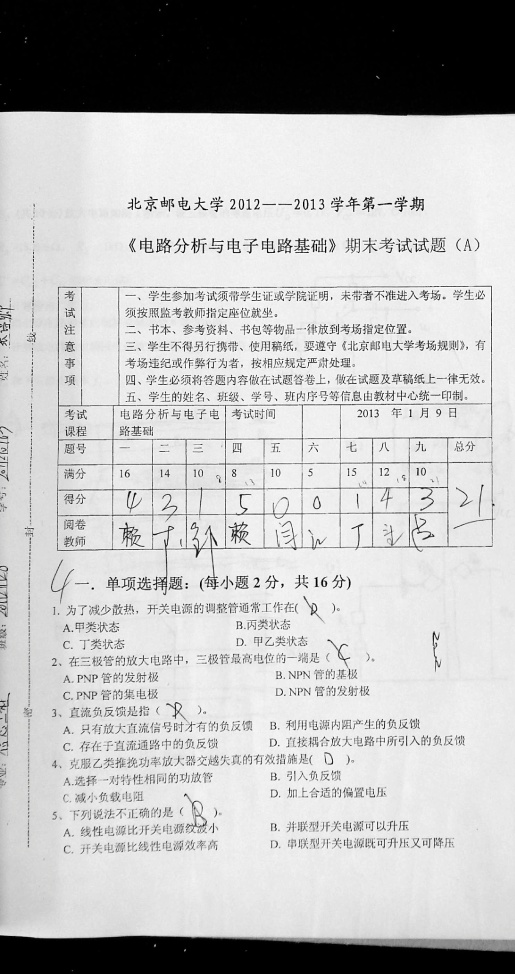 北京邮电大学 2012——2013 学年第一学期
《电路分析与电子电路基础》期末考试试题（A）
考试注意事项
一、学生参加考试须带学生证或学院证明，未带者不准进入考场。学生必
须按照监考教师指定座位就坐。
二、书本、参考资料、书包等物品一律放到考场指定位置。
三、学生不得另行携带、使用稿纸，要遵守《北京邮电大学考场规则》，有
考场违纪或作弊行为者，按相应规定严肃处理。
四、学生必须将答题内容做在试题答卷上，做在试题及草稿纸上一律无效。
五、学生的姓名、班级、学号、班内序号等信息由教材中心统一印制。
考试 电路分析与电子电 考试时间 2013 年 1 月 9 日
课程 路基础
题号 一 二 三 四 五 六 七 八 九 总分
满分 16 14 10 8 10 5 15 12 10
得分 4 3 1 5 0 0 1 4 3 21
阅卷
教师 赖 赖 闫
4 一．单项选择题：(每小题 2 分，共 16 分)
1. 为了减少散热，开关电源的调整管通常工作在( D )。
A.甲类状态 B.丙类状态
C. 丁类状态 D. 甲乙类状态
2、在三极管的放大电路中，三极管最高电位的一端是（ C ）。
A. PNP 管的发射极 B. NPN 管的基极
C. PNP 管的集电极 D. NPN 管的发射极
NPN
3、直流负反馈是指（ ）。
A. 只有放大直流信号时才有的负反馈 B. 利用电源内阻产生的负反馈
C. 存在于直流通路中的负反馈 D. 直接耦合放大电路中所引入的负反馈
4、克服乙类推挽功率放大器交越失真的有效措施是( D )。
A.选择一对特性相同的功放管 B. 引入负反馈
C. 减小负载电阻 D. 加上合适的偏置电压
5、下列说法不正确的是（ B ）。
A. 线性电源比开关电源纹波小 B. 并联型开关电源可以升压
C. 开关电源比线性电源效率高 D. 串联型开关电源既可升压又可降压
线
封